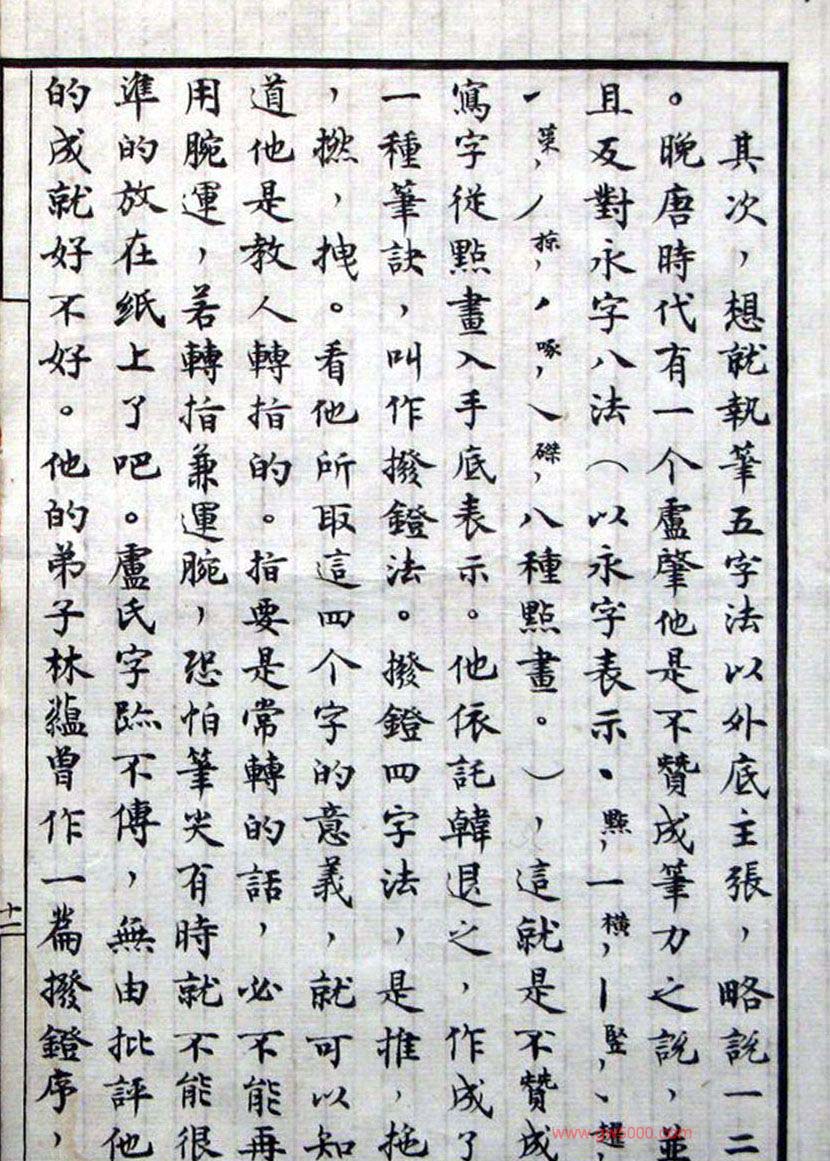 其次，想就執筆五字法以外底主張，略說一二
。晚唐時代有一个盧肇他是不贊成筆力之說，並
且反對永字八法（以永字表示丶點，一橫，丨豎，丶趯，
㇀策，丿掠，丿啄，乀磔，八種點畫。），這就是不贊成
寫字從點畫入手底表示。他依託韓退之，作成了
一種筆訣，叫作撥鐙法。撥鐙四字法，是推，拖
，撚，拽。看他所取這四个字的意義，就可以知
道他是教人轉指的。指要是常轉的話，必不能再
用腕運，若轉指兼運腕，恐怕筆尖有時就不能很
準的放在紙上了吧。盧氏字跡不傳，無由批評他
的成就好不好。他的弟子林蘊曾作一篇撥鐙序，
十二